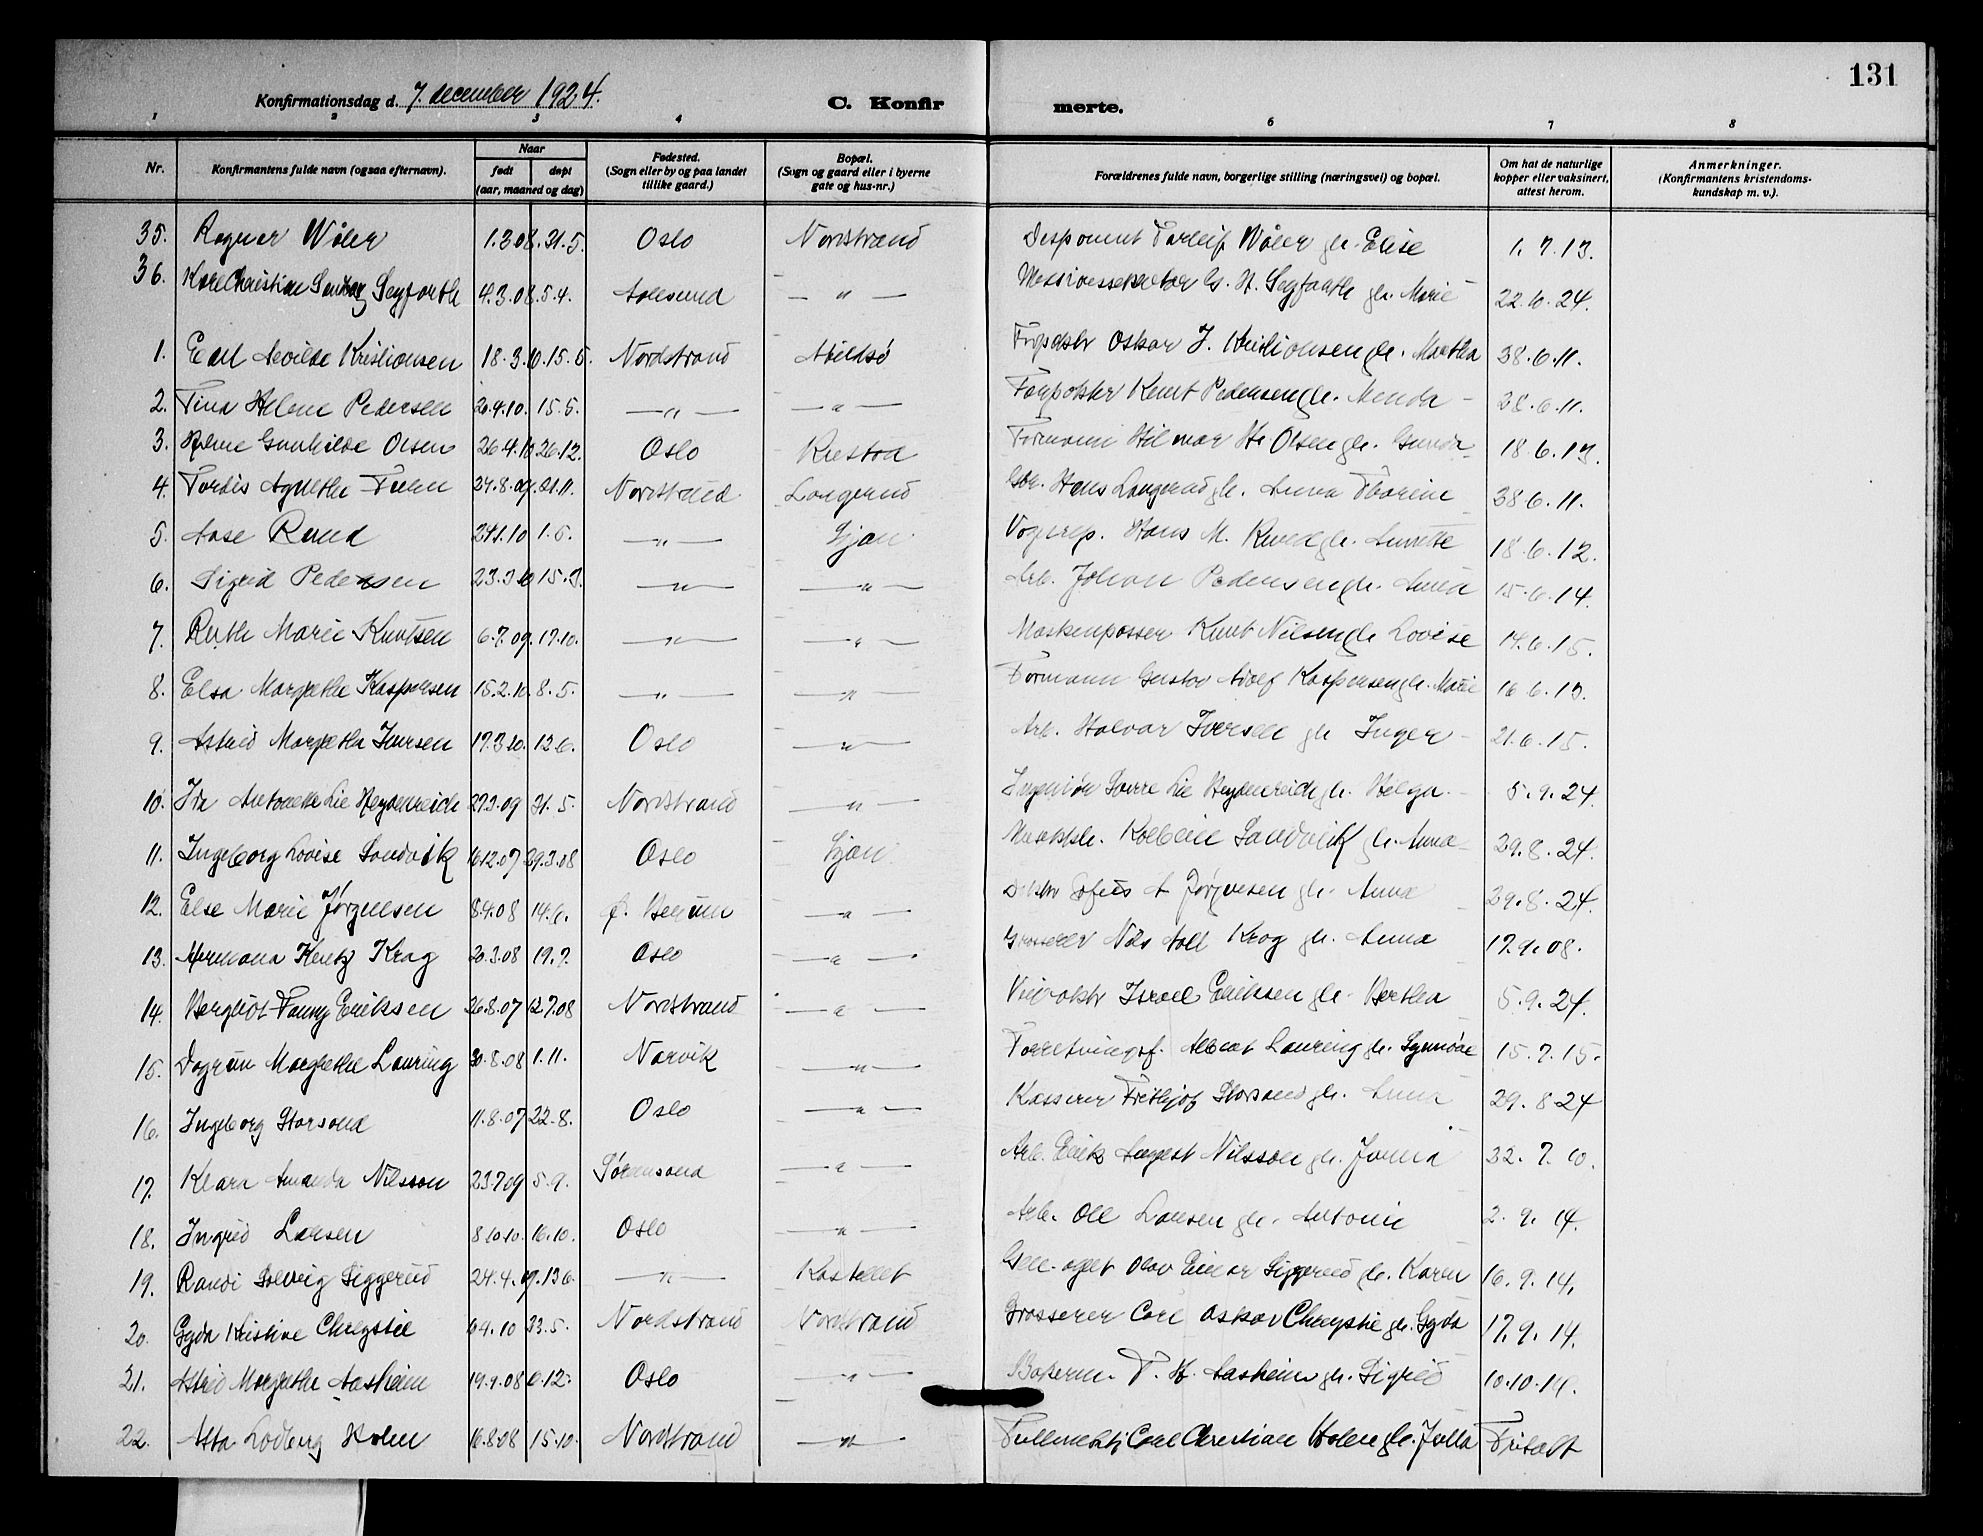 131
Konfirmationsdag d. 7 december 1924.
C. Konfirmerte.
1 2 3 4 6 7 8
Nr. Konfirmantens fulde navn (ogsaa efternavn). Naar født døpt (aar, maaned og dag) Fødested. (Sogn eller by og paa landet tillike gaard.) Bopæl. (Sogn og gaard eller i byerne gate og hus-nr.) Forældrenes fulde navn, borgerlige stilling (næringsvei) og bopæl. Om hat de naturlige kopper eller vaksinert, attest herom. Anmerkninger. (Konfirmantens kristendomskundskap m. v.).
35. Ragnar Wøler 1.3.08. 31.5. Oslo Nordstrand Disponent Torleif Wøler g.h. Elise 1.7.13.
36. Karl Christian Seyfarth 4.3.08. 5.4. Aalesund — " — G. H. Seyfarth g.h. Marie 22.10.24.
1. Kristiansen 18.3.10. 15.5. Nordstrand Abildsø Oskar J. Kristiansen g.h. Martha 28.6.11.
2. Tina Helene Pedersen 20.4.10. 15.5. — " — — " — Knut Pedersen g.h. 28.6.11.
3. Gunhilda Olsen 26.4.10 26.12. Oslo Formann Hilmar Olsen g.h. 18.6.13.
4. Tordis Agnethe 24.8.09. 21.11. Nordstrand Langerud Hans Langerud g.h. Anna Thorine 28.6.11.
5. Aase Ruud 24.1.10 1.5. — " — Ljan Hans M. Ruud g.h. Annette 18.6.12.
6. Sigrid Pedersen 23.3.10 15.3. — " — — " — Arb. Johan Pedersen g.h. 15.6.14.
7. Ruth Marie Knutsen 6.7.09. 17.10. — " — — " — Maskinpasser Knut Nilsen g.h. Lovise 14.6.15.
8. Elsa Margrethe Kaspersen 15.2.10. 8.5. — " — — " — Formann Gustav Adolf Kaspersen g.h. Marie 16.6.13.
9. Astrid Margrethe Iversen 17.3.10. 12.6. Oslo — " — Arb. Halvar Iversen g.h. Inger 21.6.15.
10. Ida Antonette Lie Heydenreich 27.3.09 31.5. Nordstrand — " — Ingeniør Sverre Lie Heydenreich g.h. Helga. 5.9.24.
11. Ingeborg Lovise Sandvik 16.12.07 29.3.08 Oslo Ljan Kolbein Sandvik g.h. Anna 29.8.24.
12. Else Marie Jørgensen 8.4.08 14.6. Ø. Bærum — " — Sofus A Jørgensen g.h. Anna 29.8.24.
13. Hermana Krag 20.3.08 19.7. Oslo — " — Grosserer Nils Aall Krag g.h. Anna 17.9.08.
14. Bergliot Fanny Eriksen 26.8.07 12.7.08 Nordstrand — " — Israel Eriksen g.h. Berthea 5.9.24.
15. Dagrun Margrethe Lauring 30.8.08 1.11. Narvik — " — Forretningsf. Albert Lauring g.h. Synnöve 15.7.15.
16. Ingeborg Storsand 11.8.07 22.8. Oslo — " — Kasserer Frithjof Storsand g.h. Anna 29.8.24
17. Klara Amanda Nilsson 23.7.09 5.9. — " — Arb. Erik August Nilsson g.h. 22.7.10.
18. Ingrid Larsen 8.10.10. 16.10. Oslo — " — Arb. Ole Larsen g.h. Antonie 2.9.14.
19. Randi Solveig Siggerud 24.4.09. 13.6. — " — Kastellet Olav Einar Siggerud g.h. Karen 16.9.14.
20. Gyda Kristine Chrystie 6.4.10 23.5. Nordstrand Nordstrand Grosserer Carl Oskar Chrystie g.h. Gyda 17.9.14.
21. Astrid Margrethe Aasheim 19.9.08 6.12. Oslo — " — T. H. Aasheim g.h. Sigrid 10.10.14.
22. Asta Lodberg Holm 16.8.08 15.10. Nordstrand — " — Carl Christian Holm g.h. Julla Fritatt